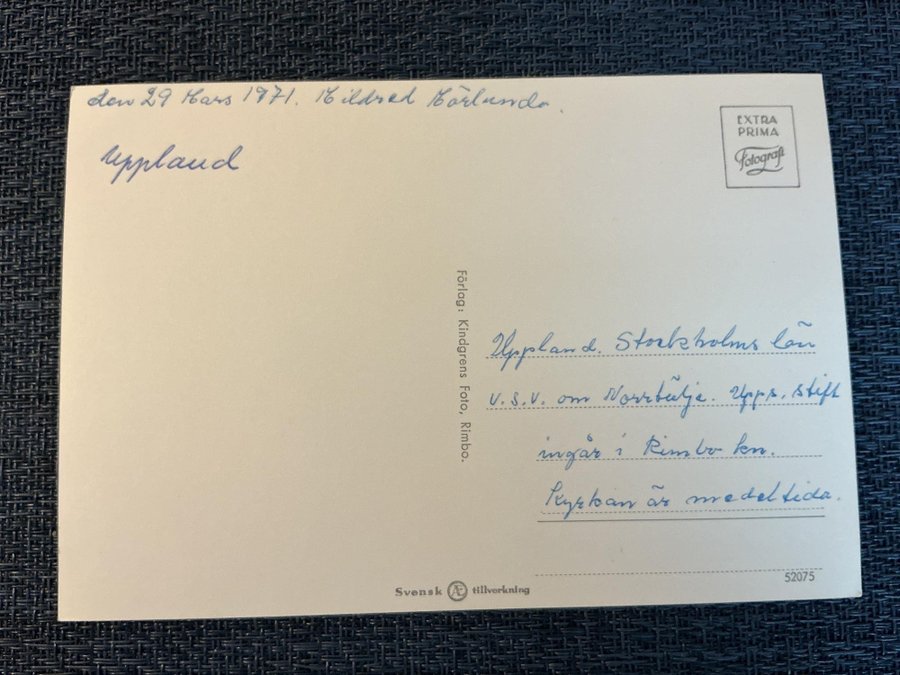 den 29 Mars 1971. Mildred Hörlunda.
Uppland
EXTRA
PRIMA
Fotografi
Förlag: Kindgrens Foto, Rimbo.
Uppland. Stockholms län
v.s.v. om Norrtälje. Upps. stift
ingår i Rimbo kn.
Kyrkan är medeltida.
52075
Svensk Æ tillverkning